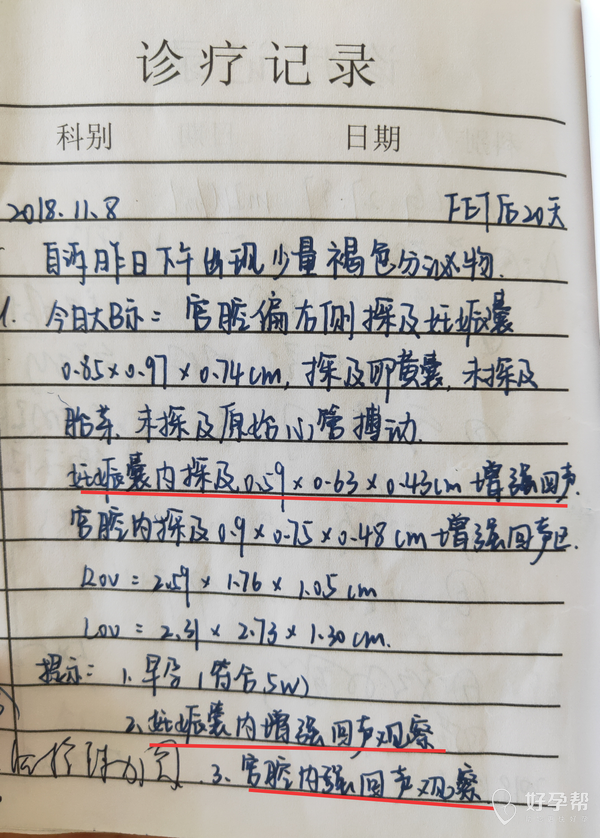 诊疗记录
科别 日期
2018.11.8 FET后20天
自诉昨日下午出现少量褐色分泌物.
1. 今日大B示: 宫腔偏右侧探及妊娠囊
0.85×0.97×0.74cm, 探及卵黄囊, 未探及
胎芽, 未探及原始心管搏动.
妊娠囊内探及0.59×0.63×0.43cm增强回声.
宫腔内探及0.9×0.75×0.48cm增强回声区.
Rov = 2.59×1.76×1.05cm
Lov = 2.31×2.73×1.30cm.
提示: 1. 早孕(符合5W)
2. 妊娠囊内增强回声观察
3. 宫腔内强回声观察
好孕帮